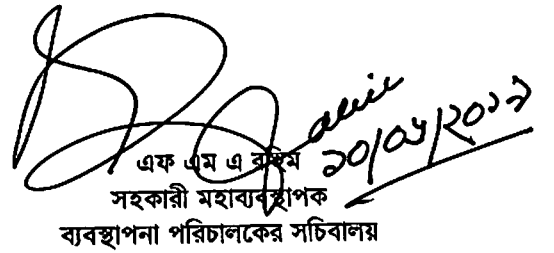 ২০/০৬/২০২১
এফ এম এ রহিম
সহকারী মহাব্যবস্থাপক
ব্যবস্থাপনা পরিচালকের সচিবালয়